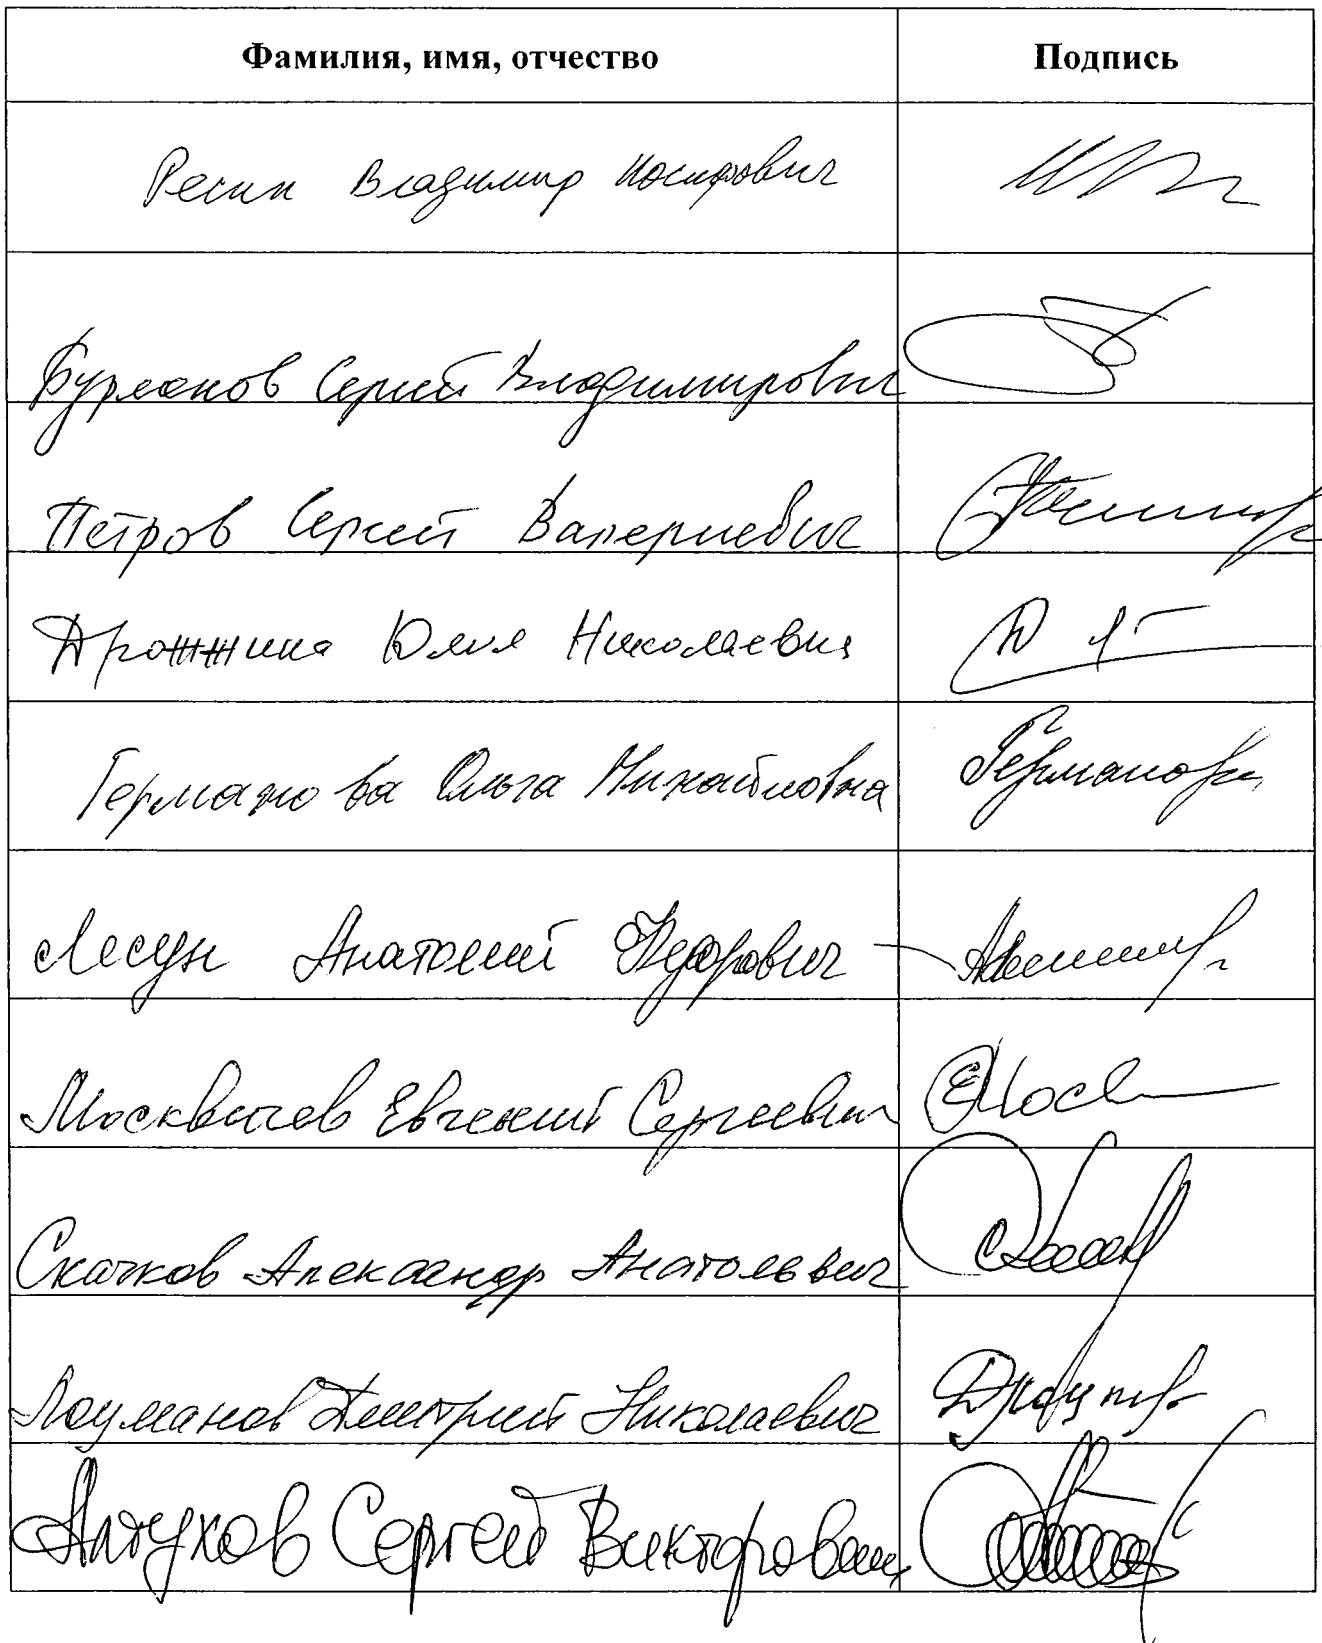 Фамилия, имя, отчество Подпись
Ресин Владимир Иосифович
Сергей Владимирович
Петров Сергей Валериевич
Дрожжина Юлия Николаевна
Германова Ольга Михайловна Германова
Лесун Анатолий Федорович
Москвичев Евгений Сергеевич
Скачков Александр Анатольевич
Дмитрий Николаевич
Алтухов Сергей Викторович